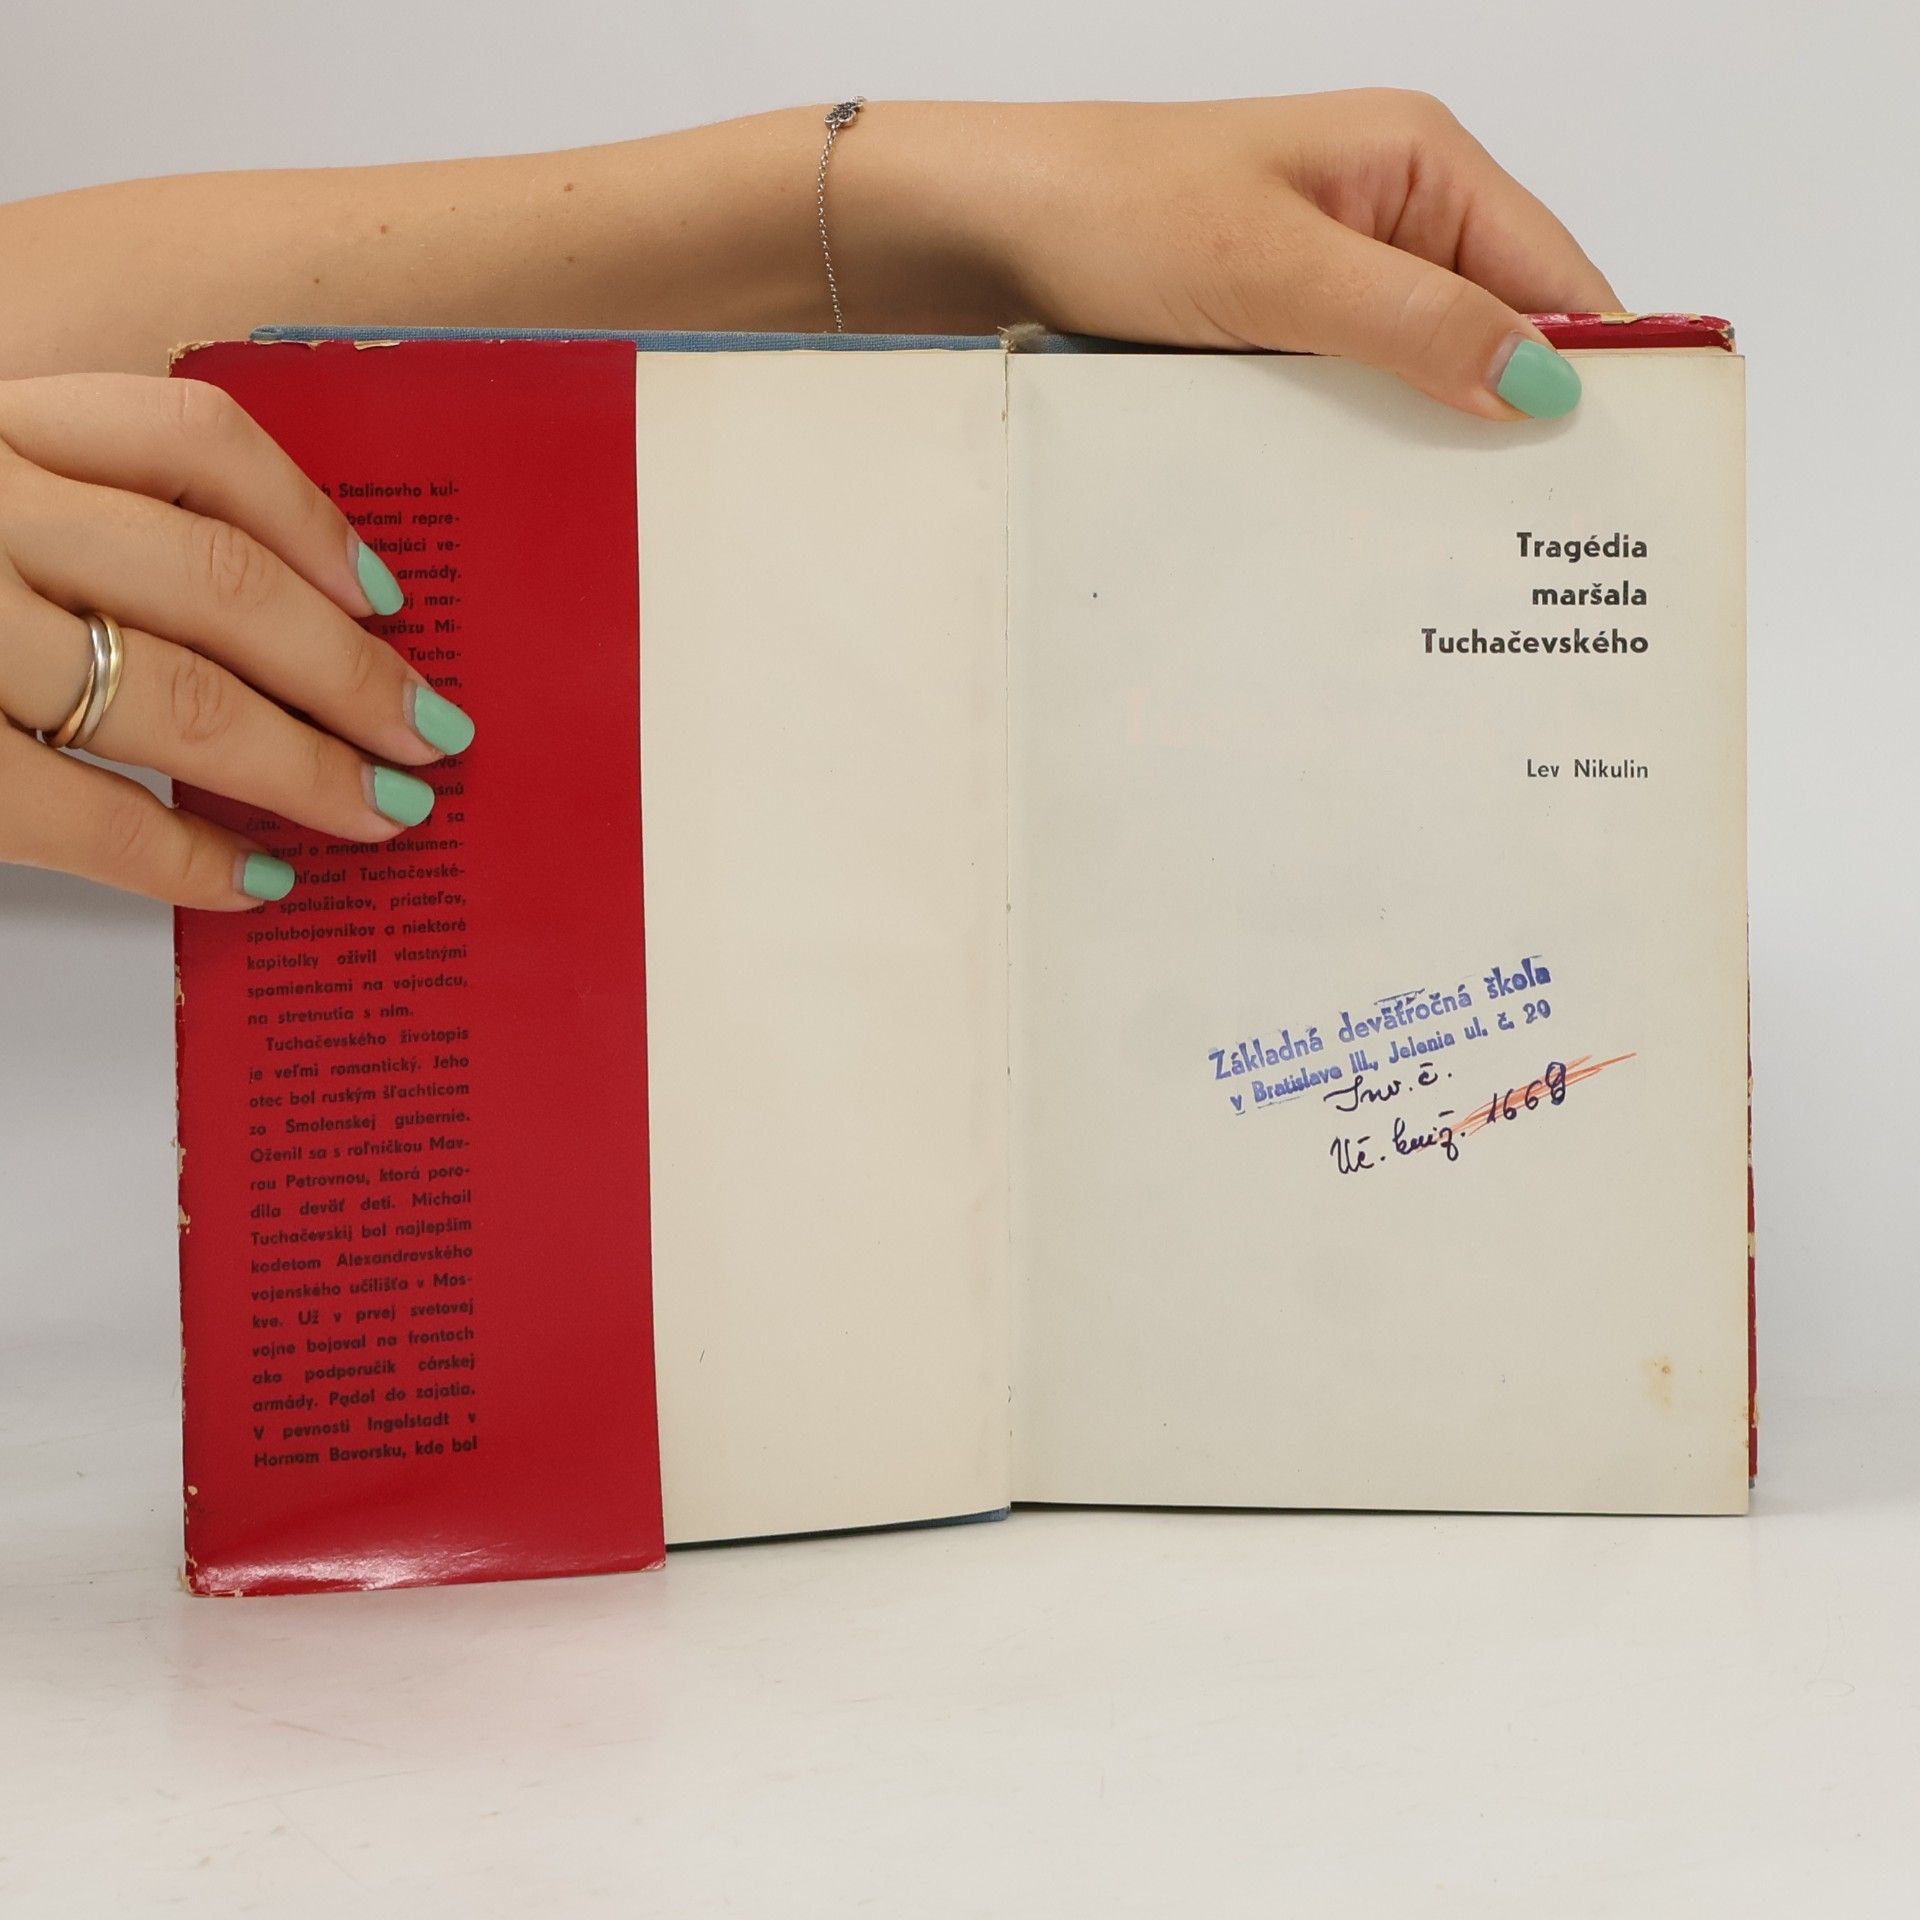 Stalinovho kul-
repre-
ve-
armády.
mar-
sväzu Mi-
Tucha-
sa
o mnohé dokumen-
Tuchačevské-
ho spolužiakov, priateľov,
spolubojovníkov a niektoré
kapitolky oživil vlastnými
spomienkami na vojvodcu,
na stretnutia s ním.
Tuchačevského životopis
je veľmi romantický. Jeho
otec bol ruským šľachticom
zo Smolenskej gubernie.
Oženil sa s roľníčkou Mav-
rou Petrovnou, ktorá poro-
dila deväť detí. Michail
Tuchačevskij bol najlepším
kadetom Alexandrovského
vojenského učilišťa v Mos-
kve. Už v prvej svetovej
vojne bojoval na frontoch
ako podporučík cárskej
armády. Padol do zajatia.
V pevnosti Ingolstadt v
Hornom Bavorsku, kde bol
Tragédia
maršala
Tuchačevského
Lev Nikulin
Základná deväťročná škola
v Bratislave III., Jelenia ul. č. 20
Inv. č.
Uč. kniž. 1668